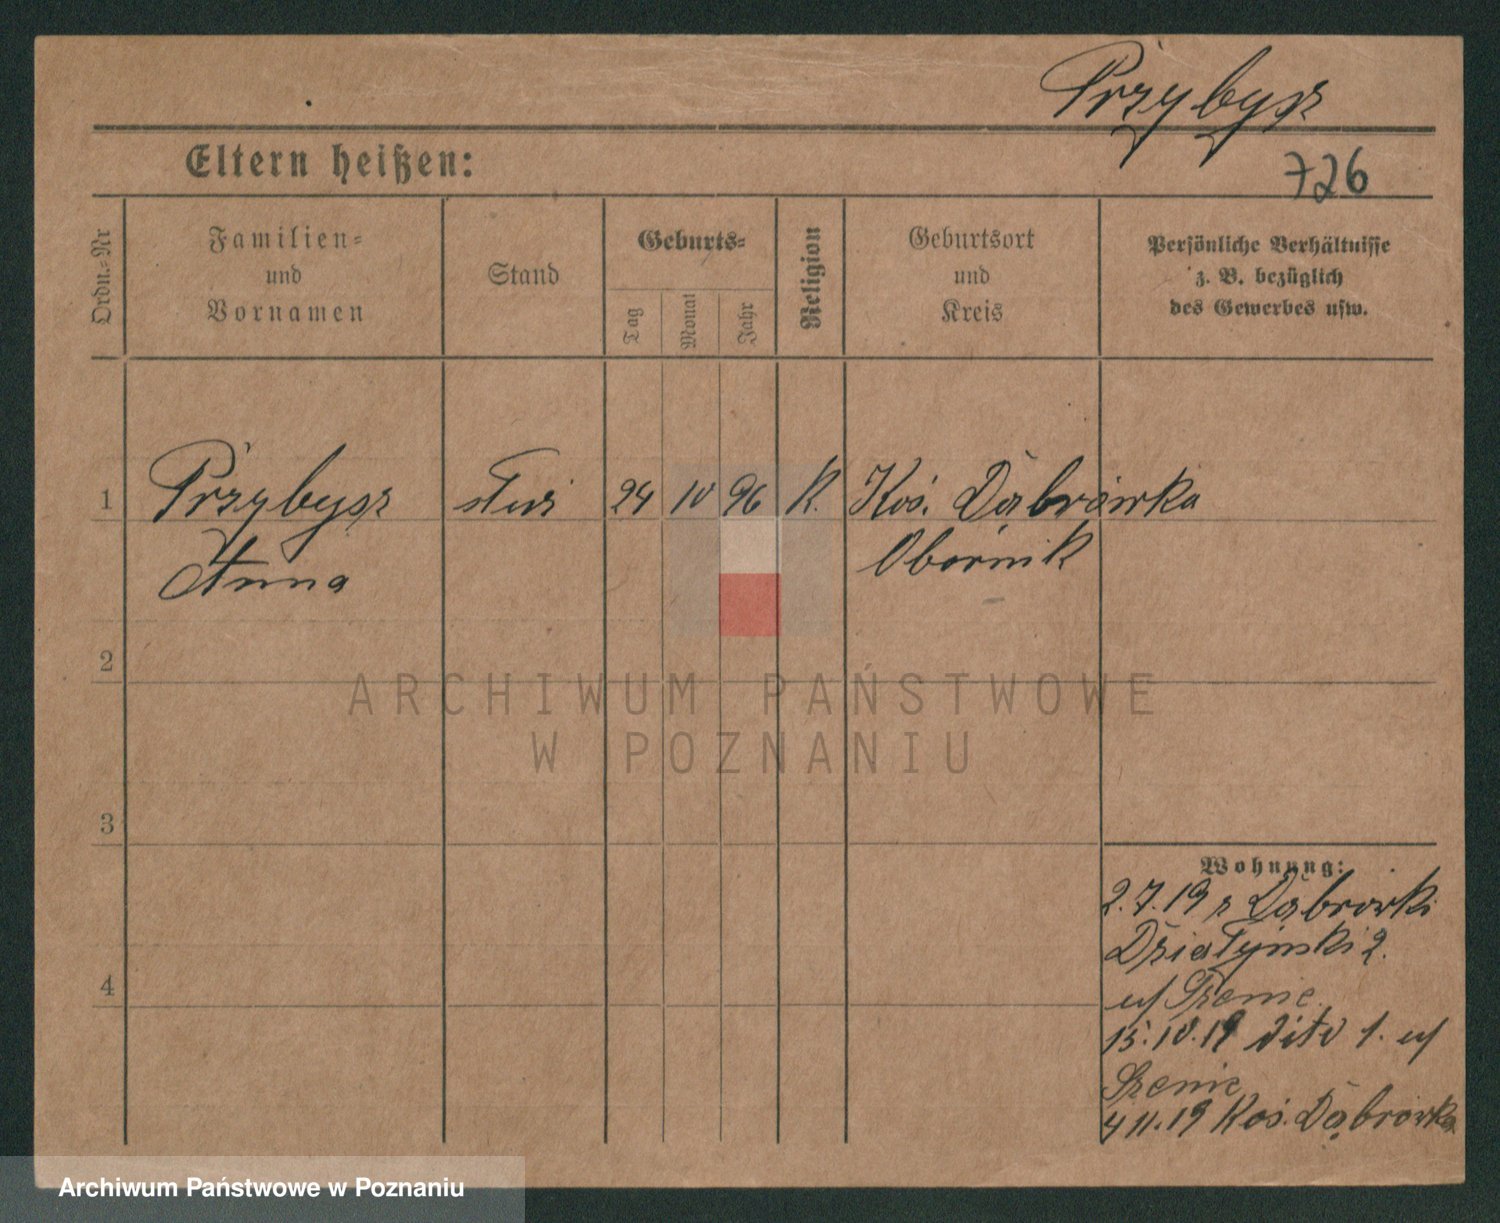 Przybysz
Eltern heißen:
726
Ordn.=Nr
Familien=
und
Vornamen
Stand
Geburts=
Tag
Monat
Jahr
Religion
Geburtsort
und
Kreis
Persönliche Verhältnisse
z. B. bezüglich
des Gewerbes usw.
1 Przybysz służ 24 10 96 K. Koś. Dąbrówka
Anna Obornik
2
ARCHIWUM PAŃSTWOWE
W POZNANIU
3
Wohnung:
2.7.19 z Dąbrówki
Działyński 2.
u/
4
15.10.19 dito 1. u/
4 11.19 Koś. Dąbrówka
Archiwum Państwowe w Poznaniu